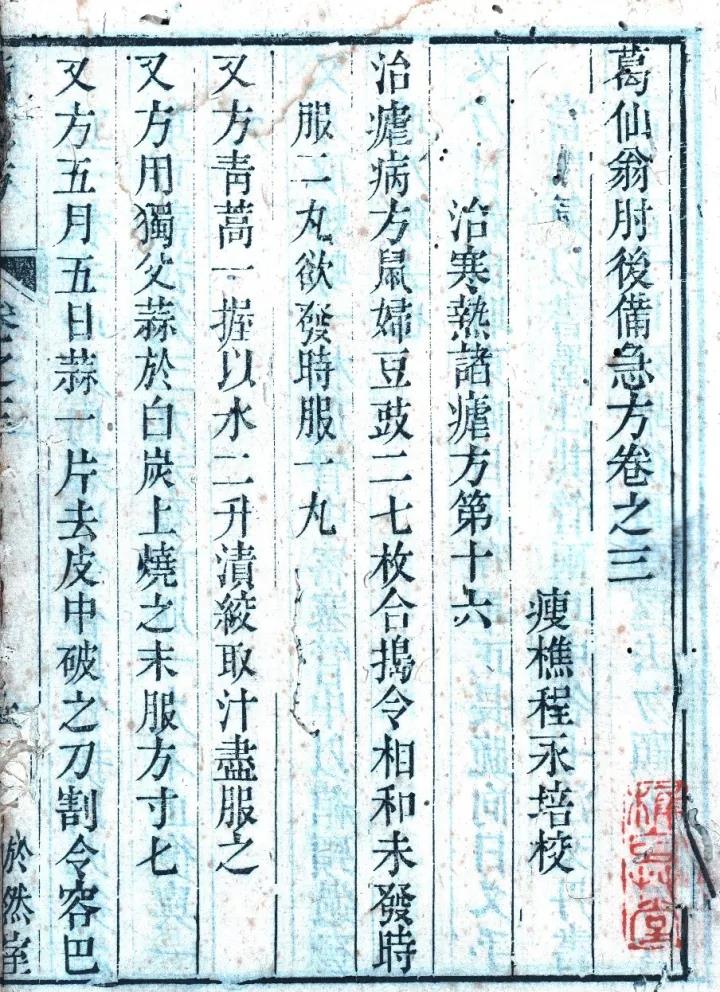 葛仙翁肘後備急方卷之三
瘦樵程永培校
治寒熱諸瘧方第十六
治瘧病方鼠婦豆豉二七枚合搗令相和未發時
服二丸欲發時服一丸
又方青蒿一握以水二升漬絞取汁盡服之
又方用獨父蒜於白炭上燒之末服方寸匕
又方五月五日蒜一片去皮中破之刀割令容巴
卷之三
於然室